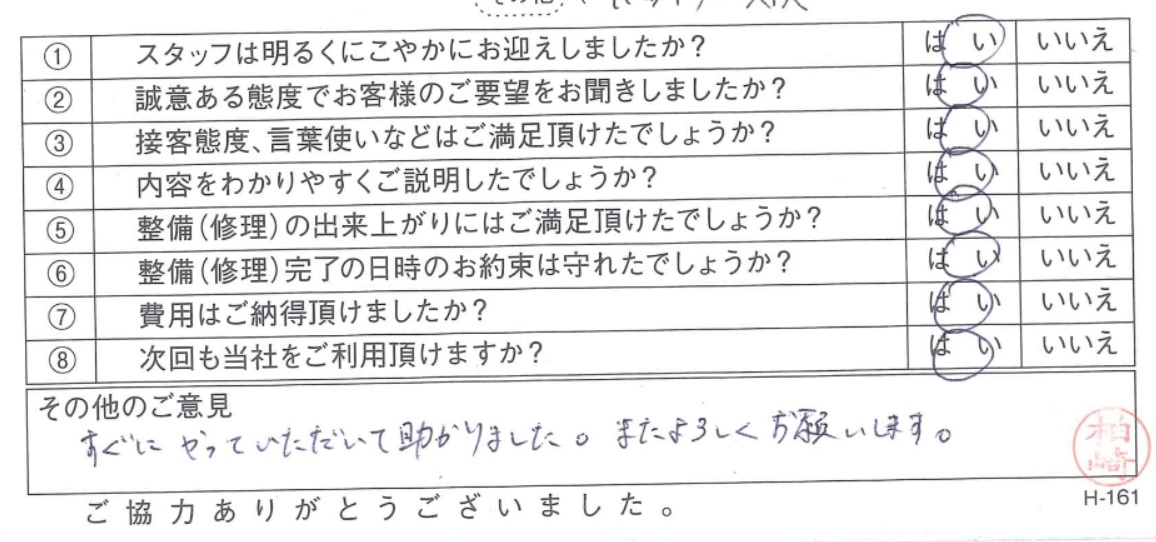 その他
① スタッフは明るくにこやかにお迎えしましたか? はい いいえ
② 誠意ある態度でお客様のご要望をお聞きしましたか? はい いいえ
③ 接客態度、言葉使いなどはご満足頂けたでしょうか? はい いいえ
④ 内容をわかりやすくご説明したでしょうか? はい いいえ
⑤ 整備(修理)の出来上がりにはご満足頂けたでしょうか? はい いいえ
⑥ 整備(修理)完了の日時のお約束は守れたでしょうか? はい いいえ
⑦ 費用はご納得頂けましたか? はい いいえ
⑧ 次回も当社をご利用頂けますか? はい いいえ
その他のご意見
すぐにやっていただいて助かりました。またよろしくお願いします。
柏崎
ご協力ありがとうございました。
H-161